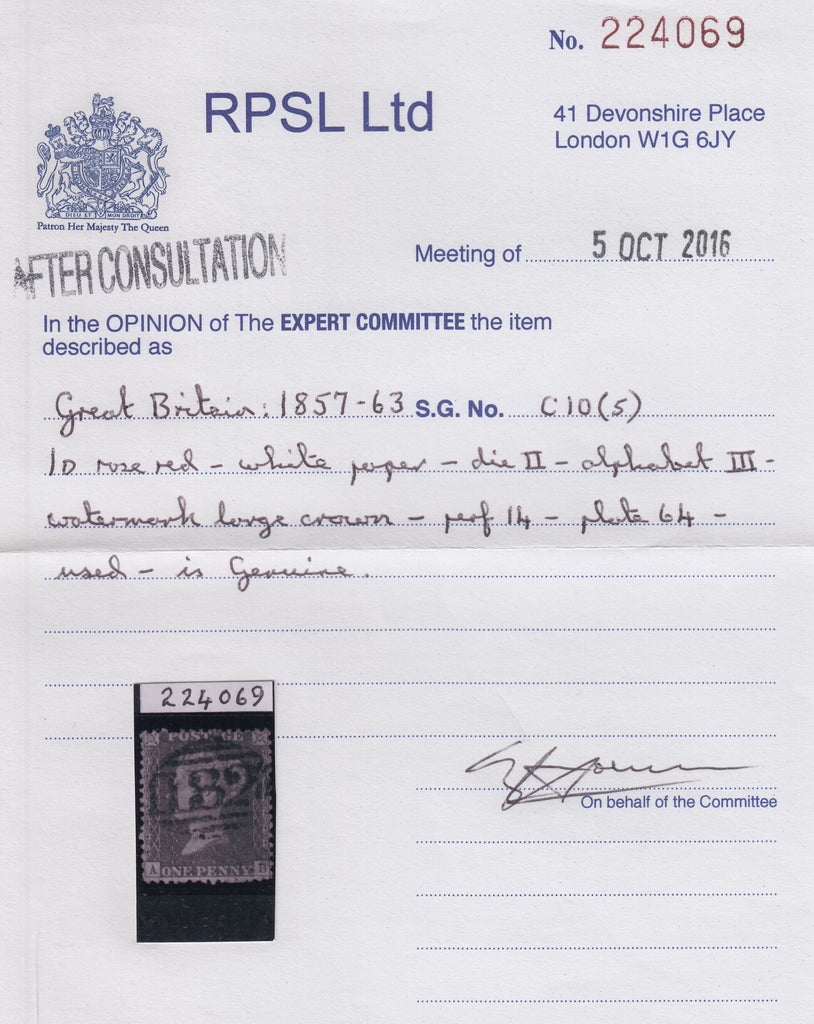 No. 224069
RPSL Ltd
41 Devonshire Place
London W1G 6JY
DIEU ET MON DROIT
Patron Her Majesty The Queen
AFTER CONSULTATION
Meeting of 5 OCT 2016
In the OPINION of The EXPERT COMMITTEE the item
described as
Great Britain: 1857-63 S.G. No. C10(5)
1D rose red - white paper - die II - alphabet III -
watermark large crown - perf 14 - plate 64 -
used - is Genuine.
224069
POSTAGE
187
A ONE PENNY E
On behalf of the Committee